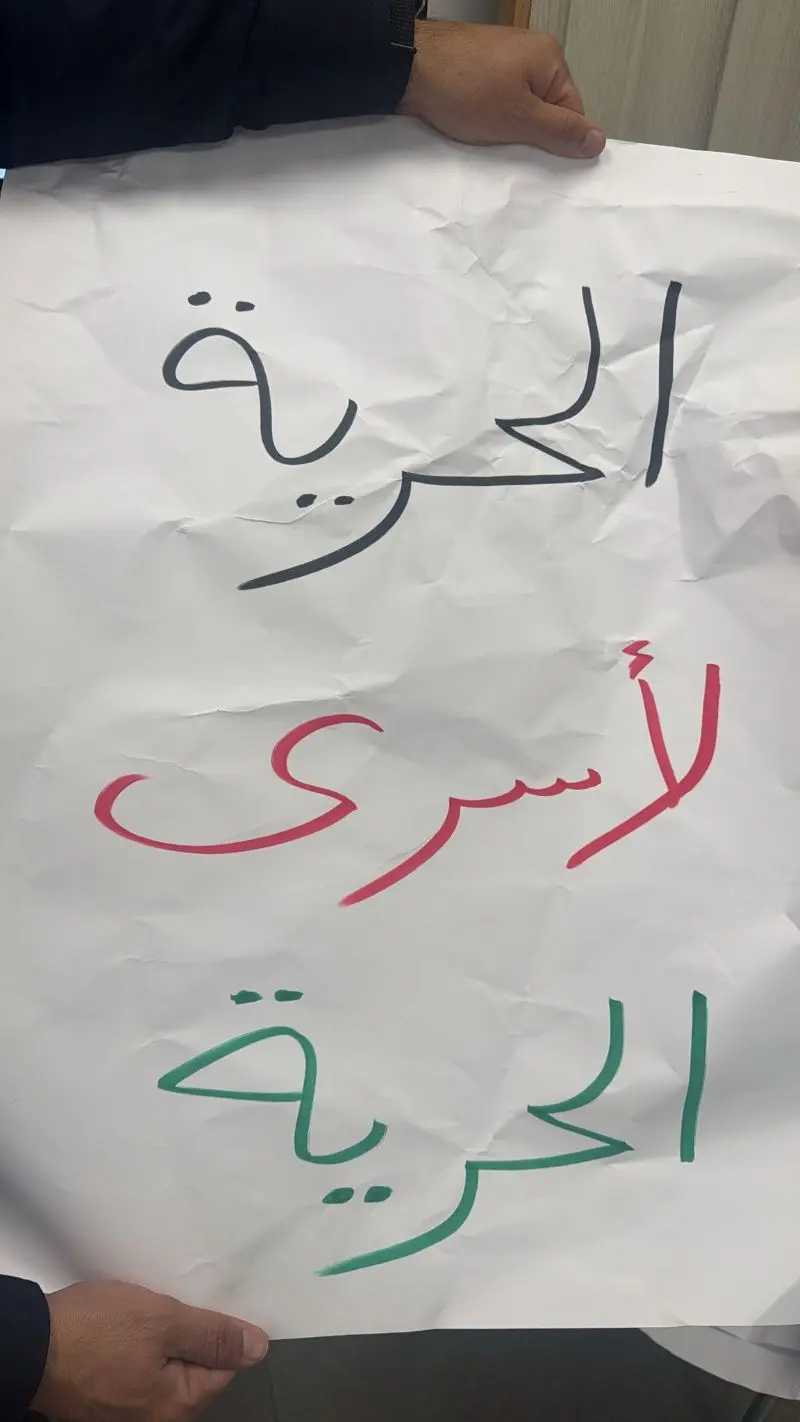 الحرية
لأسرى
الحرية